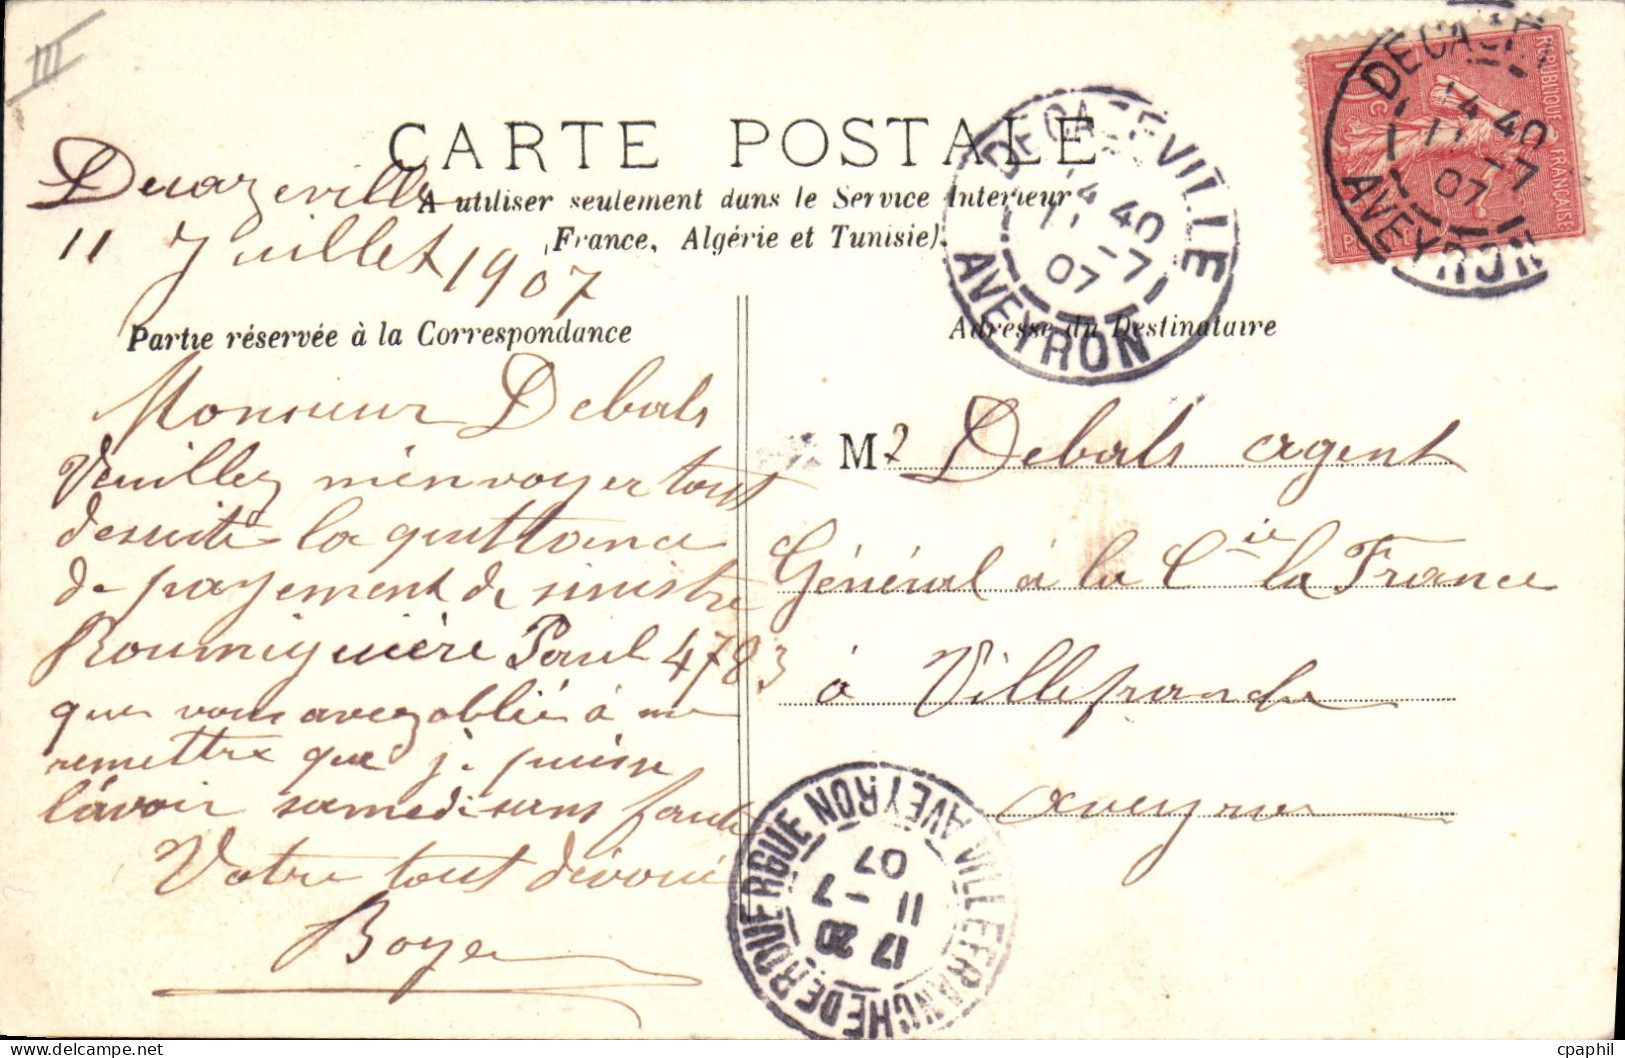 III
CARTE POSTALE
A utiliser seulement dans le Service Intérieur
(France, Algérie et Tunisie).
Decazeville
11 Juillet 1907
Partie réservée à la Correspondance
Monsieur Debals
Veuillez m'envoyer tout
desuite la quittance
de payement de sinistre
Roumiguière Paul 4783
que vous avez oublié à me
remettre que je puisse
l'avoir samedi sans faute
Votre tout dévoué
Boyer
Adresse du Destinataire
Mr Debals agent
Général à la Cie la France
à Villefranche
aveyron
DECAZEVILLE
14 40
11 -7
07
AVEYRON
REPUBLIQUE FRANÇAISE
10 c
POSTES
DECAZE
14 40
11 -7
07
AVEYRON
VILLEFRANCHE DE ROUERGUE AVEYRON
17 20
11 -7
07
cpaphil